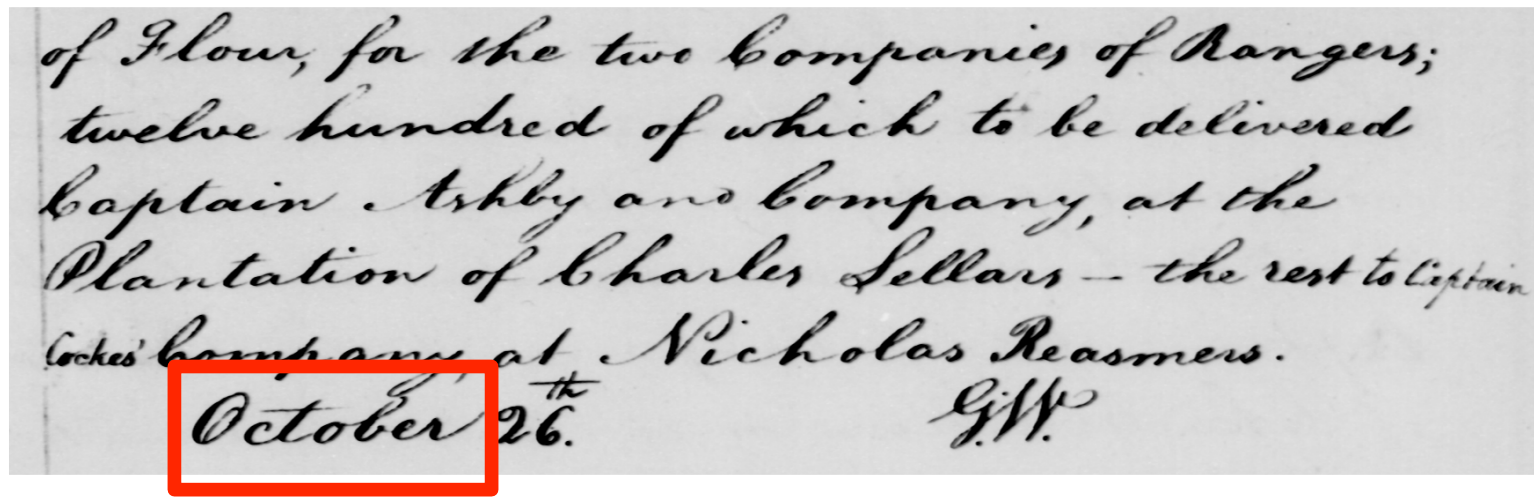 of Flour, for the two Companies of Rangers;
twelve hundred of which to be delivered
Captain Ashby and Company, at the
Plantation of Charles Sellars - the rest to Captain
Cockes' Company, at Nicholas Reasmers.
October 26th. G.W.